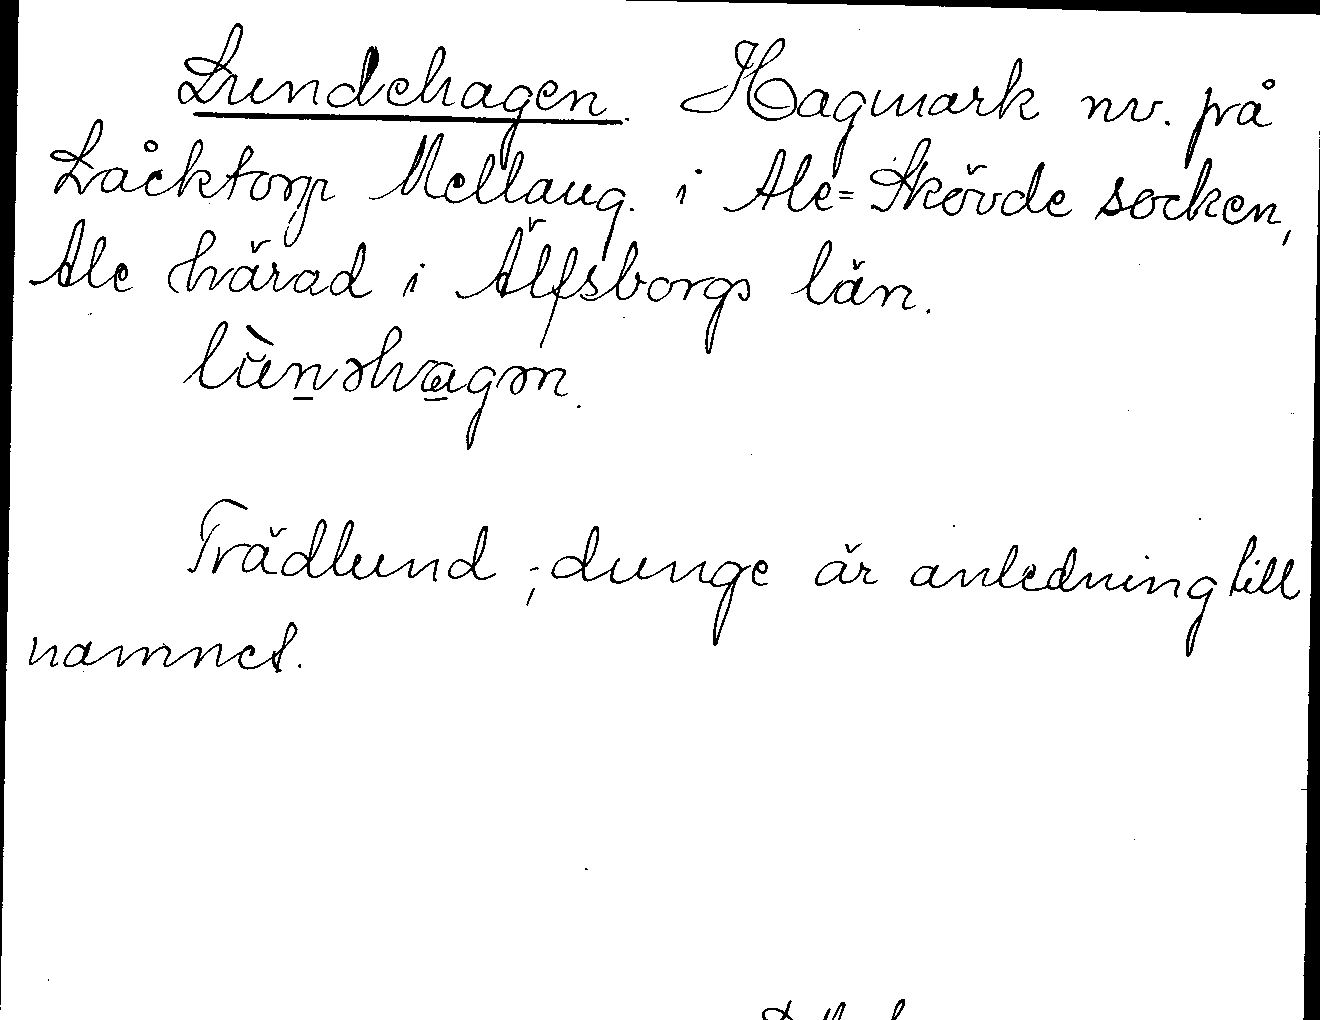 Lundehagen. Hagmark nv. på
Låcktorp Mellaug. i Ale=Skövde socken,
Ale härad i Älfsborgs län.
lùnəhagən.
Trädlund ; dunge är anledning till
namnet.